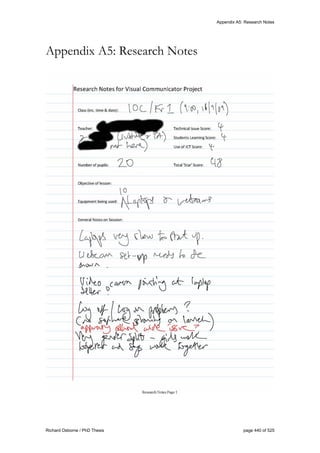 Appendix A5: Research Notes
Appendix A5: Research Notes
Research Notes for Visual Communicator Project
Class (inc. time & date): 10C / Fr 1 (9:00, 18/9/09)
Teacher: 2 ( not here) Technical Issue Score: 4
Students Learning Score: 4
Use of ICT Score: 4
Number of pupils: 20 Total 'Star' Score: 48
Objective of lesson:
Equipment being used: 10 Laptops & webcams
General Notes on Session:
Laptops very slow to start up.
Webcam set-up needs to be
shown.
Video camera pointing at laptop
better?
Log off / Log on problems?
(old software planning on launch)
apparently school wide issue?
Very gender split - girls work
together and boys work together
Research Notes Page 1
Richard Osborne / PhD Thesis page 440 of 525